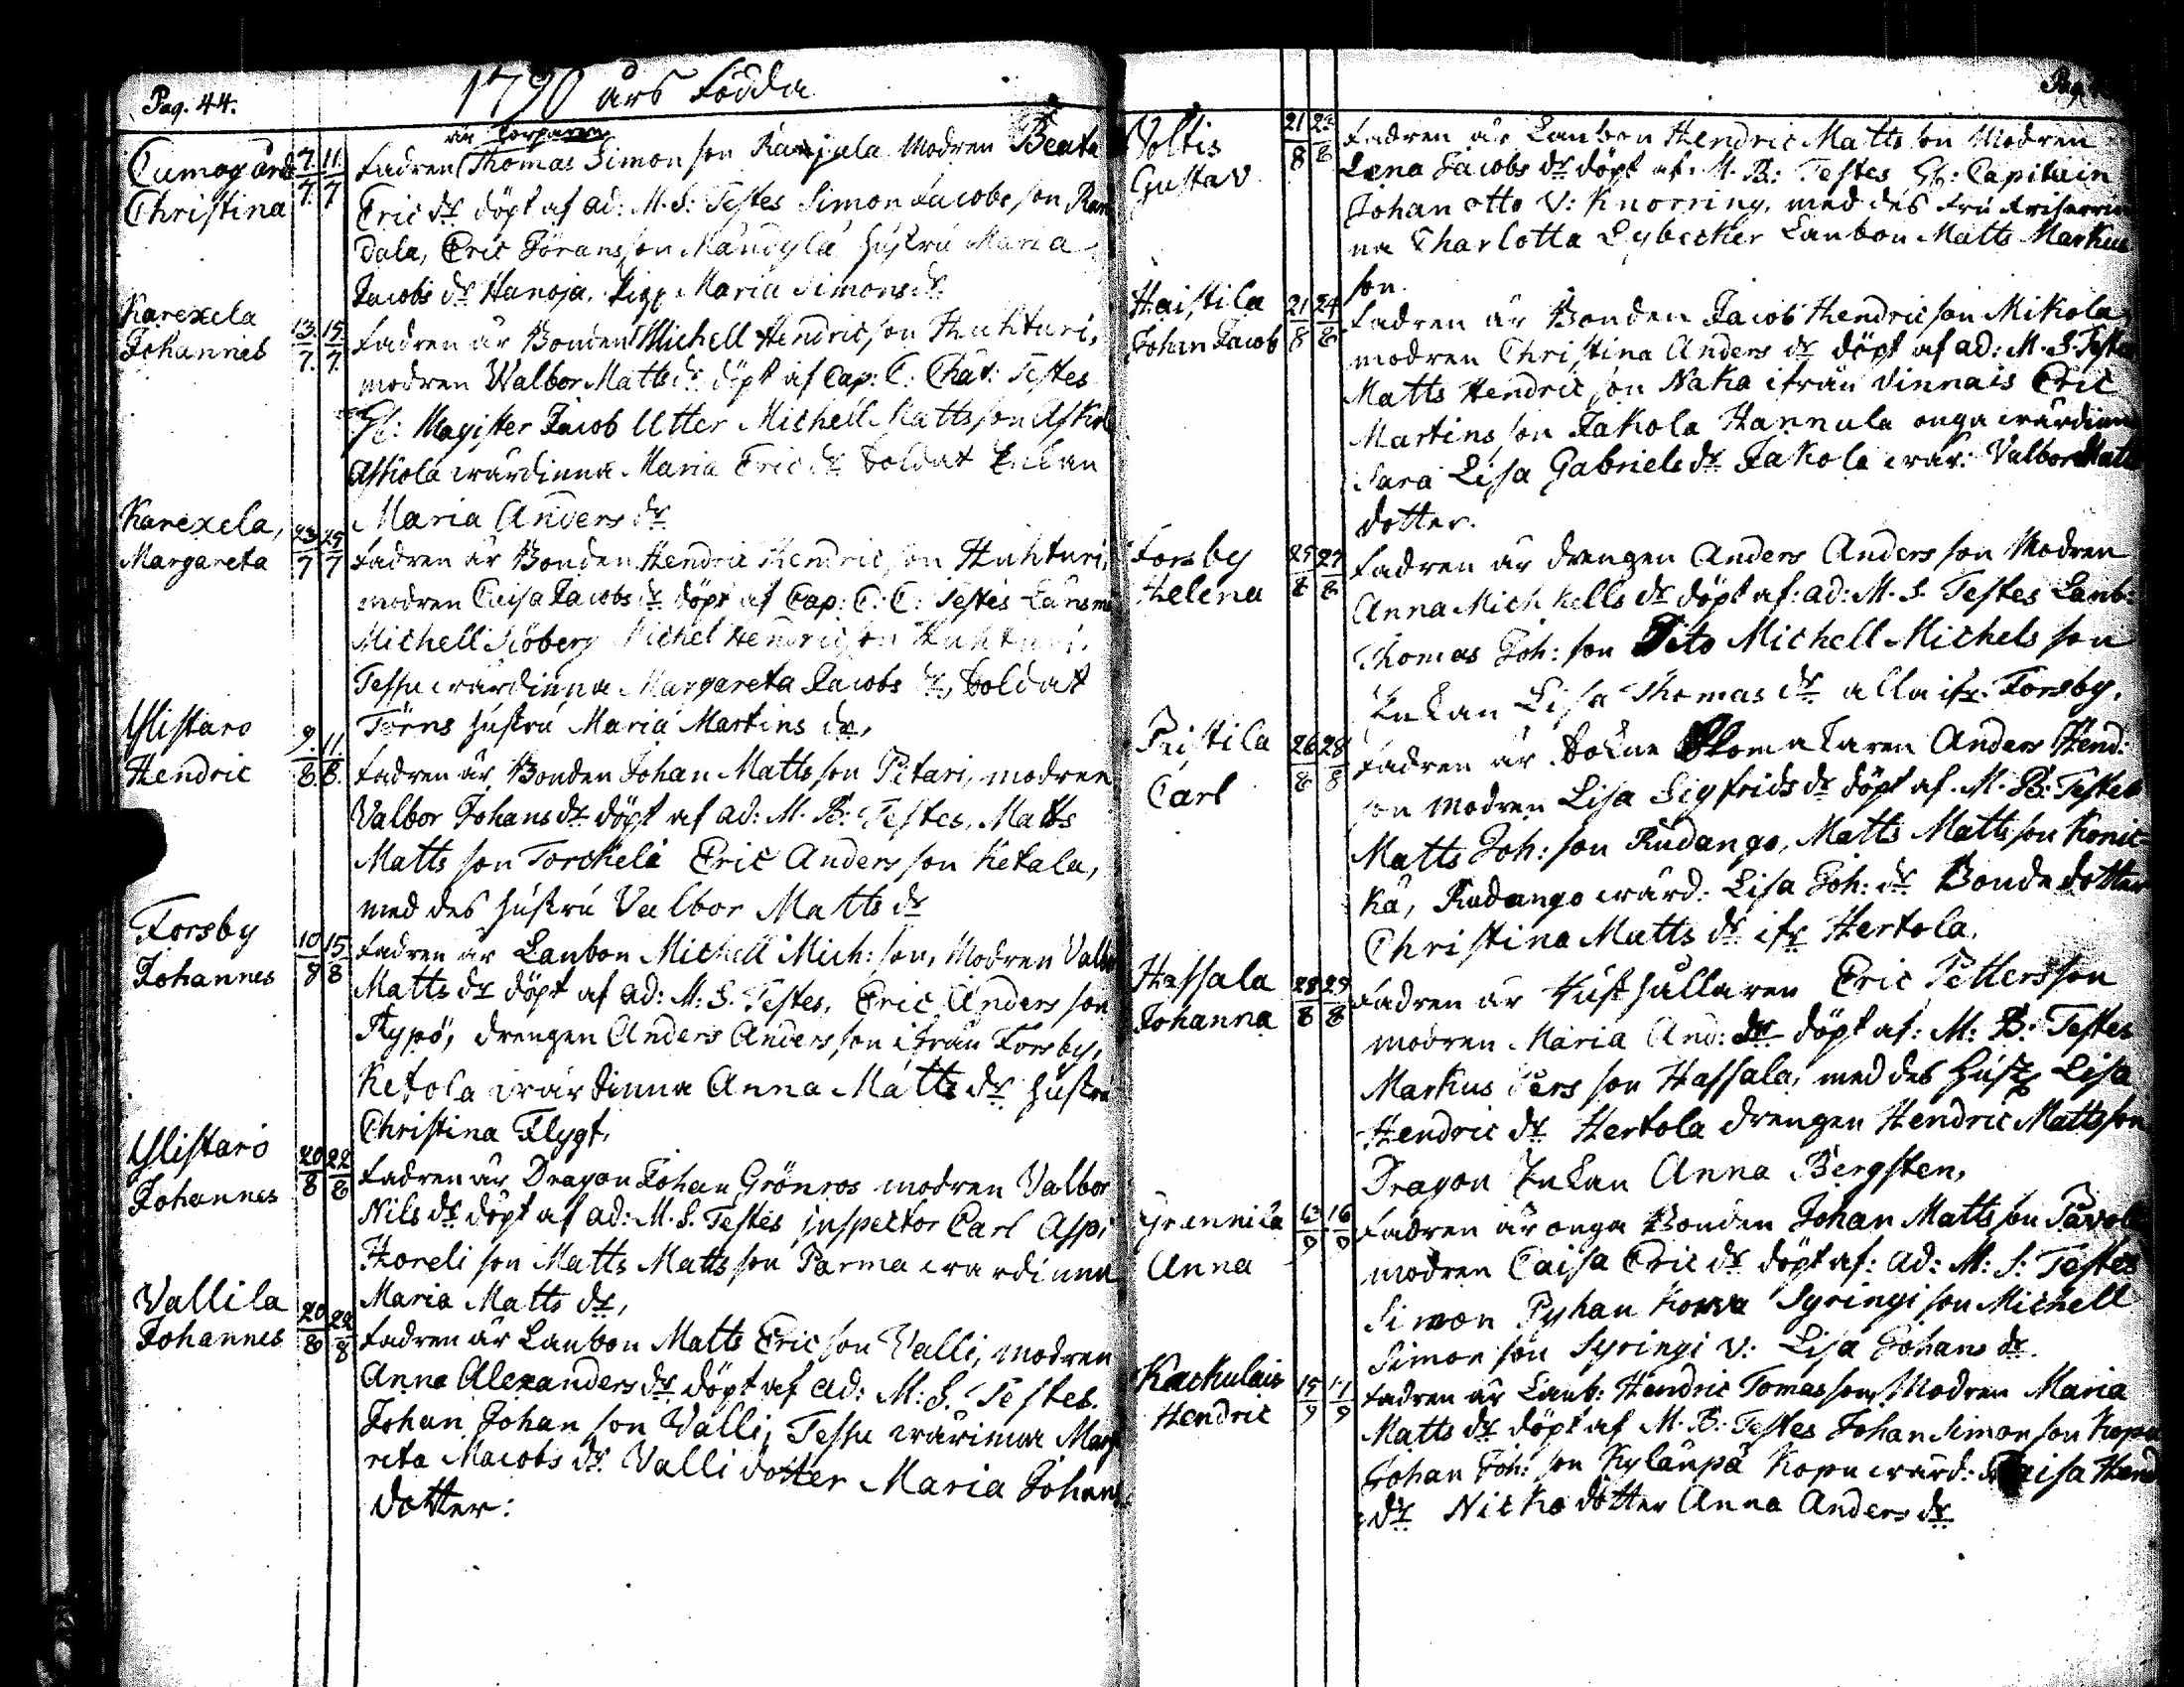 Pag. 44.
1790 års Födda
är Torparen
Cumogård 7/7 11/7 Fadren Thomas Simon son Kanjala Modren Beata
Christina Eric dr döpt af ad: M. S: Testes Simon Jacobs son
dala, Eric Göransson Mandyla hustru Maria
Jacobs dr Hanoja. Pig: Maria Simons dr
Karexela
Johannes 13/7 15/7 Fadren är Bonden Michell Hendric son Huhturi,
modren Walbor Matts dr döpt af Cap: C: Chat: Testes
Magister Jacob Utter Michell Matts son Askola
Askola wärdinna Maria Eric dr Soldat Enkan
Maria Anders dr
Karexela,
Margareta 23/7 25/7 Fadren är Bonden Hendric Hendric son Huhturi,
modren Caisa Jacobs dr döpt af Cap: C: C: Testes Länsm
Michell Siöberg Michel Hendric son Huhturi.
Tessu wärdinna Margareta Jacobs dr, Soldat
Törns hustru Maria Martins dr,
Ylistaro
Hendric 9/8 11/8 Fadren är Bonden Johan Matts son Pitari, modren
Valbor Johans dr döpt af ad: M. B: Testes, Matts
Matts son Torckela Eric Anders son Ketala,
med des hustru Valbor Matts dr
Forsby
Johannes 10/8 15/8 Fadren är Lanbon Michell Mich: son, Modren Valbor
Matts dr döpt af ad: M: S. Testes, Eric Anders son
Rypö, drengen Anders Anders son ifrån Forsby,
Ketola wärdinna Anna Matts dr hustru
Christina Flygt,
Ylistaro
Johannes 20/8 22/8 Fadren är Dragon Johan Grönros modren Valbor
Nils dr döpt af ad: M. S. Testes inspector Carl Asp,
Horeli son Matts Matts son Parma wärdinna
Maria Matts dr,
Vallila
Johannes 20/8 22/8 Fadren är Lanbon Matts Eric son Valli, modren
Anna Alexanders dr döpt af ad: M: S. Testes.
Johan Johan son Valli, Tessu wärinna Marga
reta Macobs dr Valli dotter Maria Johans
dotter:
Voltis
Gustav 21/8 Fadren är Lanbon Hendric Matts son Modren
Lena Jacobs dr döpt af. M. B: Testes H: Capitain
Johan otto V: Knorring, med des fru friherrin
na Charlotta Lybecker Lanbon Matts Markus
son.
Haistila
Johan Jacob 21/8 24/8 Fadren är Bonden Jacob Hendric son Mikola
modren Christina Anders dr döpt af ad: M. S. Testes
Matts Hendric son Naka ifrån Vinnais Eric
Martins son Jakola Hannula onga wärdinna
Sara Lisa Gabriels dr Jakola wär: Valbor Matts
dotter.
Forsby
Helena 25/8 27/8 Fadren är drengen Anders Anders son Modren
Anna Mich kells dr döpt af: ad: M. S. Testes Lanb:
Thomas Joh: son Dito Michell Michels son
Enkan Lisa Thomas dr alla ifr. Forsby.
Pristila
Carl 26/8 28/8 Fadren är Sokne Skomakaren Anders Hend:
son modren Lisa Sigfrids dr döpt af. M. B: Testes
Matts Joh: son Rudango, Matts Matts son Konic
ka, Rudango wärd: Lisa Joh: dr Bonde dotter
Christina Matts dr ifr Hertola.
Hassala
Johanna 28/8 29/8 Fadren är Hushållaren Eric Petters son
modren Maria And: dr döpt af: M: B: Testes
Markus Pers son Hassala, med des hust: Lisa
Hendric dr Hertola drengen Hendric Matts son
Dragon Enkan Anna Bergsten,
Grennila
Anna 13/9 16/9 Fadren är onga Bonden Johan Matts son Pavola
modren Caisa Eric dr döpt af: ad: M: S: Testes
Simon Pyhan Korva Syringi son Michell
Simon son Syringi V: Lisa Johans dr.
Kackulais
Hendric 15/9 17/9 Fadren är Lanb: Hendric Tomas son, Modren Maria
Matts dr döpt af M. B: Testes Johan Simon son Kopu
Johan Joh: son Kylänpä Kopu wärd: Caisa Hend
dr Nicko dotter Anna Anders dr